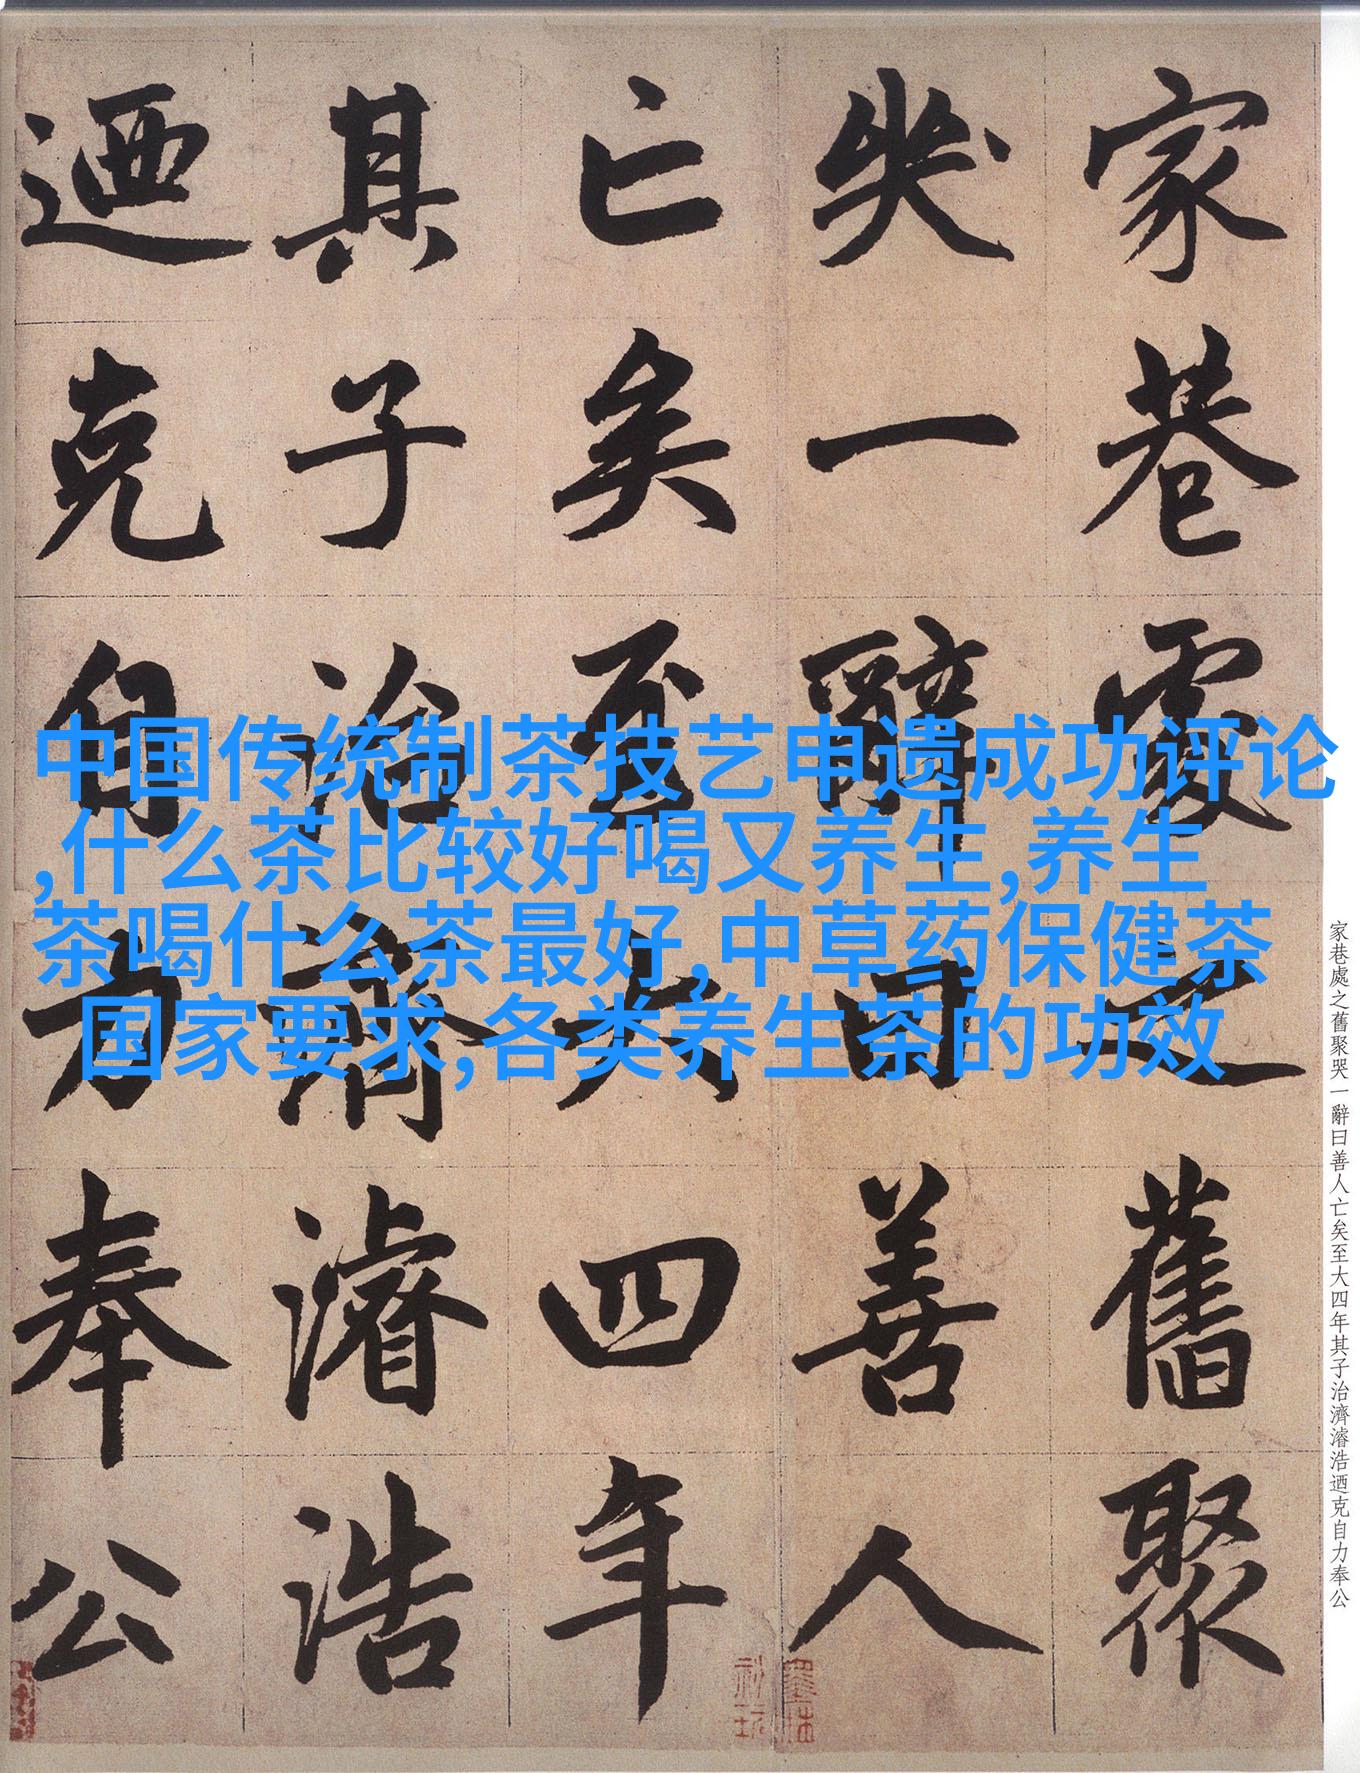 家巷處之舊聚
哭一辭曰善人
亡矣至大四年
其子治濟濬浩
迺克自力奉公
中国传统制茶技艺申遗成功评论
,什么茶比较好喝又养生,养生
茶喝什么茶最好,中草药保健茶
国家要求,各类养生茶的功效
家巷處之舊聚哭一辭曰善人亡矣至大四年其子治濟濬浩迺克自力奉公
墨林
秘玩